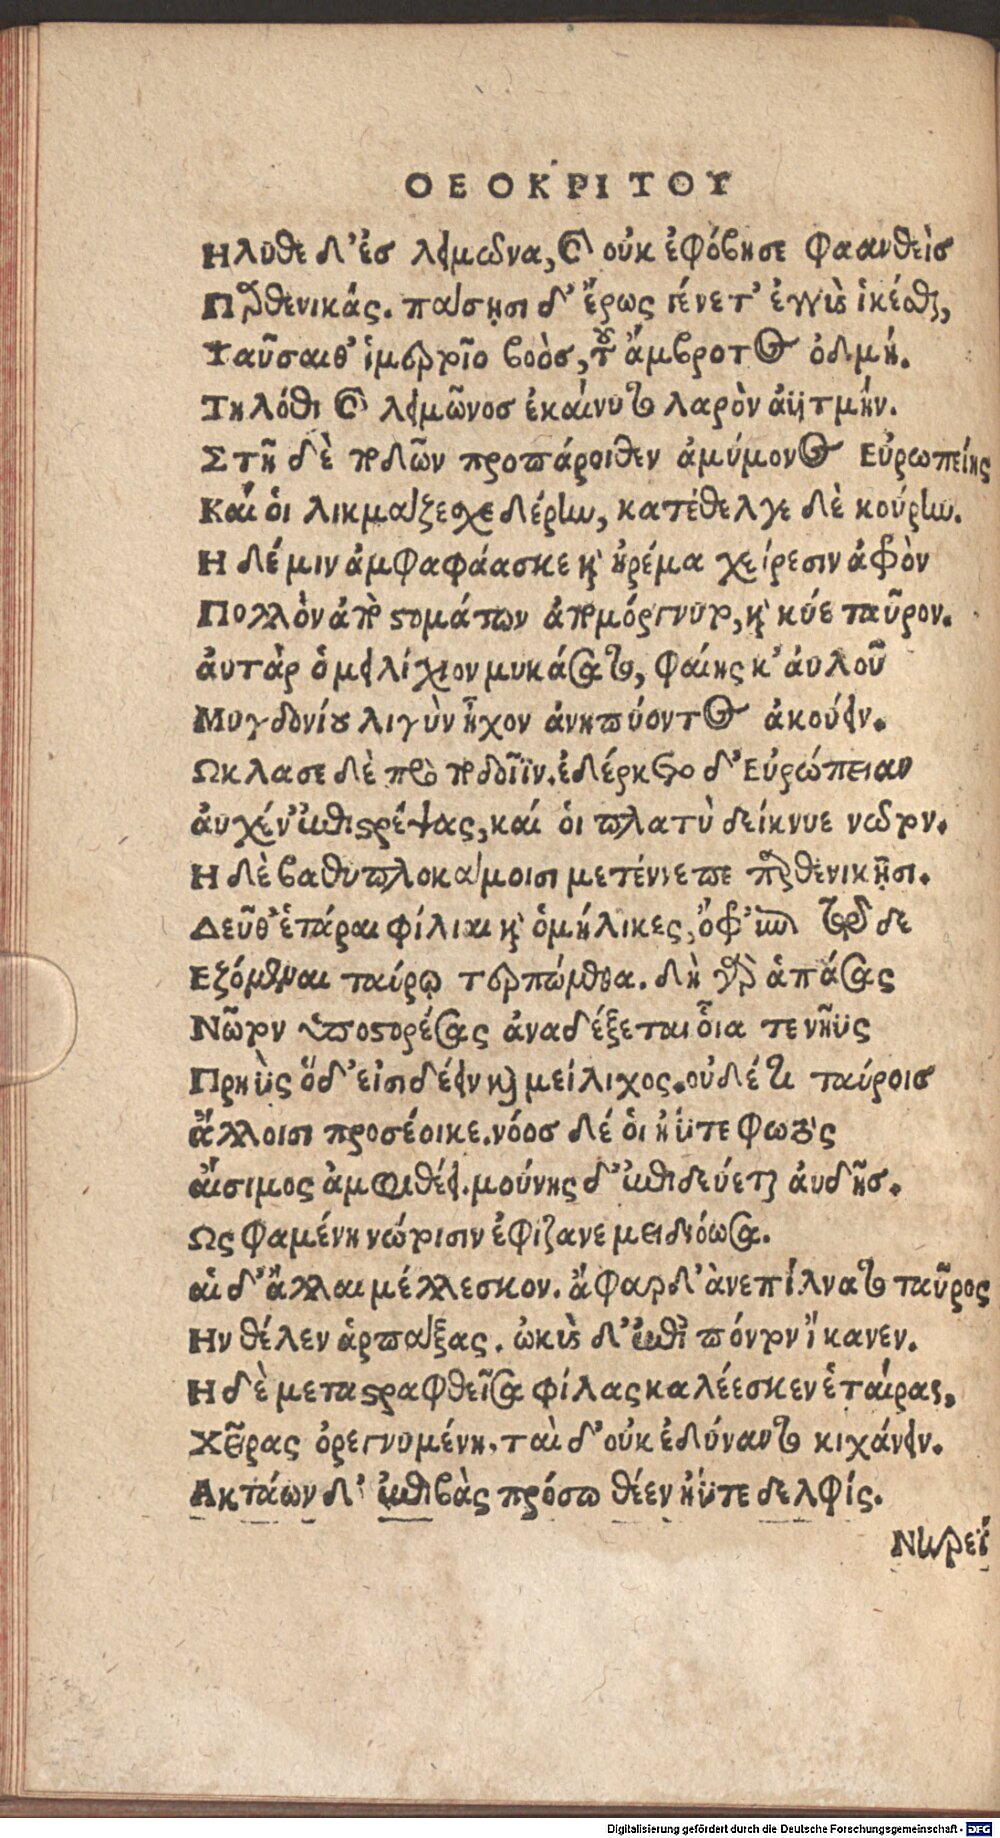 ΘΕΟΚΡΙΤΟΥ
Ηλυθε δ' ἐσ λειμῶνα, καὶ οὐκ ἐφόβησε φαανθεὶσ
Παρθενικάς. πάσησι δ' ἔρως γένετ' ἐγγὺς ἱκέσθαι,
Ψαῦσαιθ' ἱμερτοῖο βοὸσ, τοῦ ἄμβροτος ὀδμή.
Τηλόθι καὶ λειμῶνοσ ἐκαίνυτο λαρὸν ἀϋτμήν.
Στῆ δὲ ποδῶν προπάροιθεν ἀμύμονος Εὐρωπείης
Καί οἱ λιχμάζεσκε δέρην, κατέθελγε δὲ κούρην.
Η δέ μιν ἀμφαφάασκε καὶ ἠρέμα χείρεσιν ἀφρὸν
Πολλὸν ἀπὸ στομάτων ἀπομόργνυτο, καὶ κύε ταῦρον.
ἀυτὰρ ὁ μειλίχιον μυκάσατο, φαίης κ' ἀυλοῦ
Μυγδονίου λιγὺν ἦχον ἀνηπύοντος ἀκούειν.
Ωκλασε δὲ πρὸ ποδοῖϊν. ἐδέρκετο δ' Εὐρώπειαν
ἀυχέν' ἐπιστρέψας, καί οἱ πλατὺ δείκνυε νῶτον.
Η δὲ βαθυπλοκάμοισι μετέννεπε παρθενικῆσι.
Δεῦθ' ἑτάραι φίλιαι καὶ ὁμήλικες, ὄφρ' ἐπὶ τῷδε
Εζόμεναι ταύρῳ τερπώμεθα. δὴ γὰρ ἁπάσας
Νῶτον ὑποστορέσας ἀναδέξεται οἷα τε νηῦς
Πρηὺς ὅδ' εἰσιδέειν καὶ μείλιχος. οὐδέ τι ταύροισ
ἄλλοισι προσέοικε. νόοσ δέ οἱ ἠΰτε φωτὸς
αἴσιμος ἀμφιθέει. μούνης δ' ἐπιδεύεται ἀυδῆσ.
Ως φαμένη νώτοισιν ἐφίζανε μειδιόωσα.
αἱ δ' ἄλλαι μέλλεσκον. ἄφαρ δ' ἀνεπίλνατο ταῦρος
Ην θέλεν ἁρπάξας. ὠκὺς δ' ἐπὶ πόντον ἵκανεν.
Η δὲ μεταστραφθεῖσα φίλας καλέεσκεν ἑταίρας,
Χεῖρας ὀρεγνυμένη. ταὶ δ' οὐκ ἐδύναντο κιχάνειν.
Ακτάων δ' ἐπιβὰς πρόσω θέεν ἠΰτε δελφίς.
Νηρεΐ
Digitalisierung gefördert durch die Deutsche Forschungsgemeinschaft - DFG